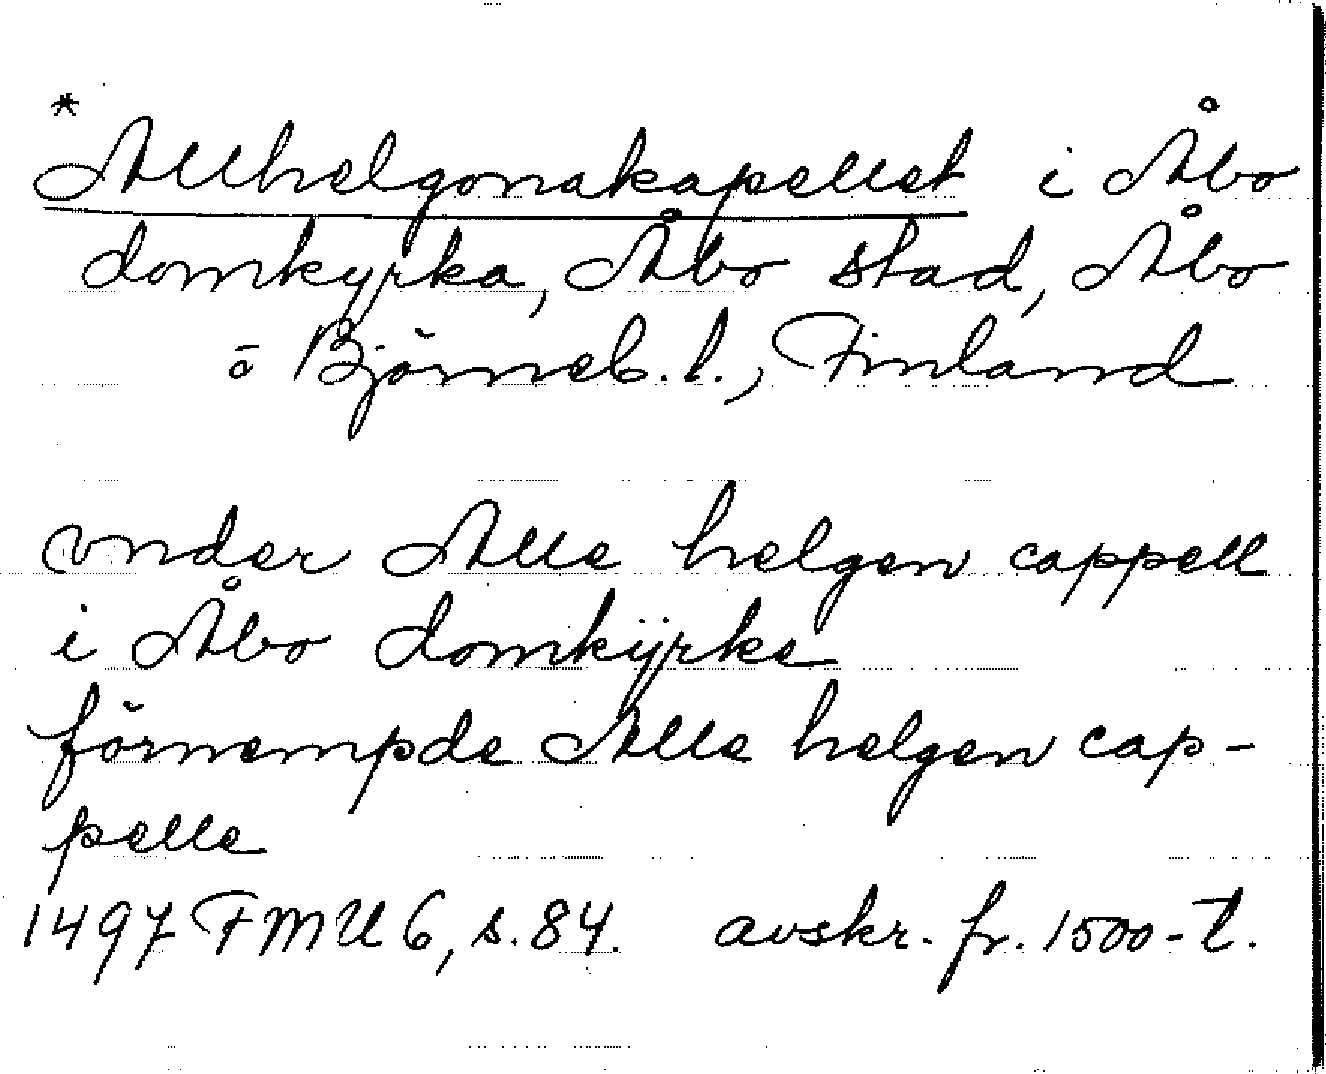 *
Allhelgonakapellet i Åbo
domkyrka, Åbo stad, Åbo
o Björneb. l., Finland
vnder Alle helgen cappell
i Åbo domkÿrke
förnempde Alle helgen cap-
pelle
1497 FMU 6, s. 84. avskr. fr. 1500-t.